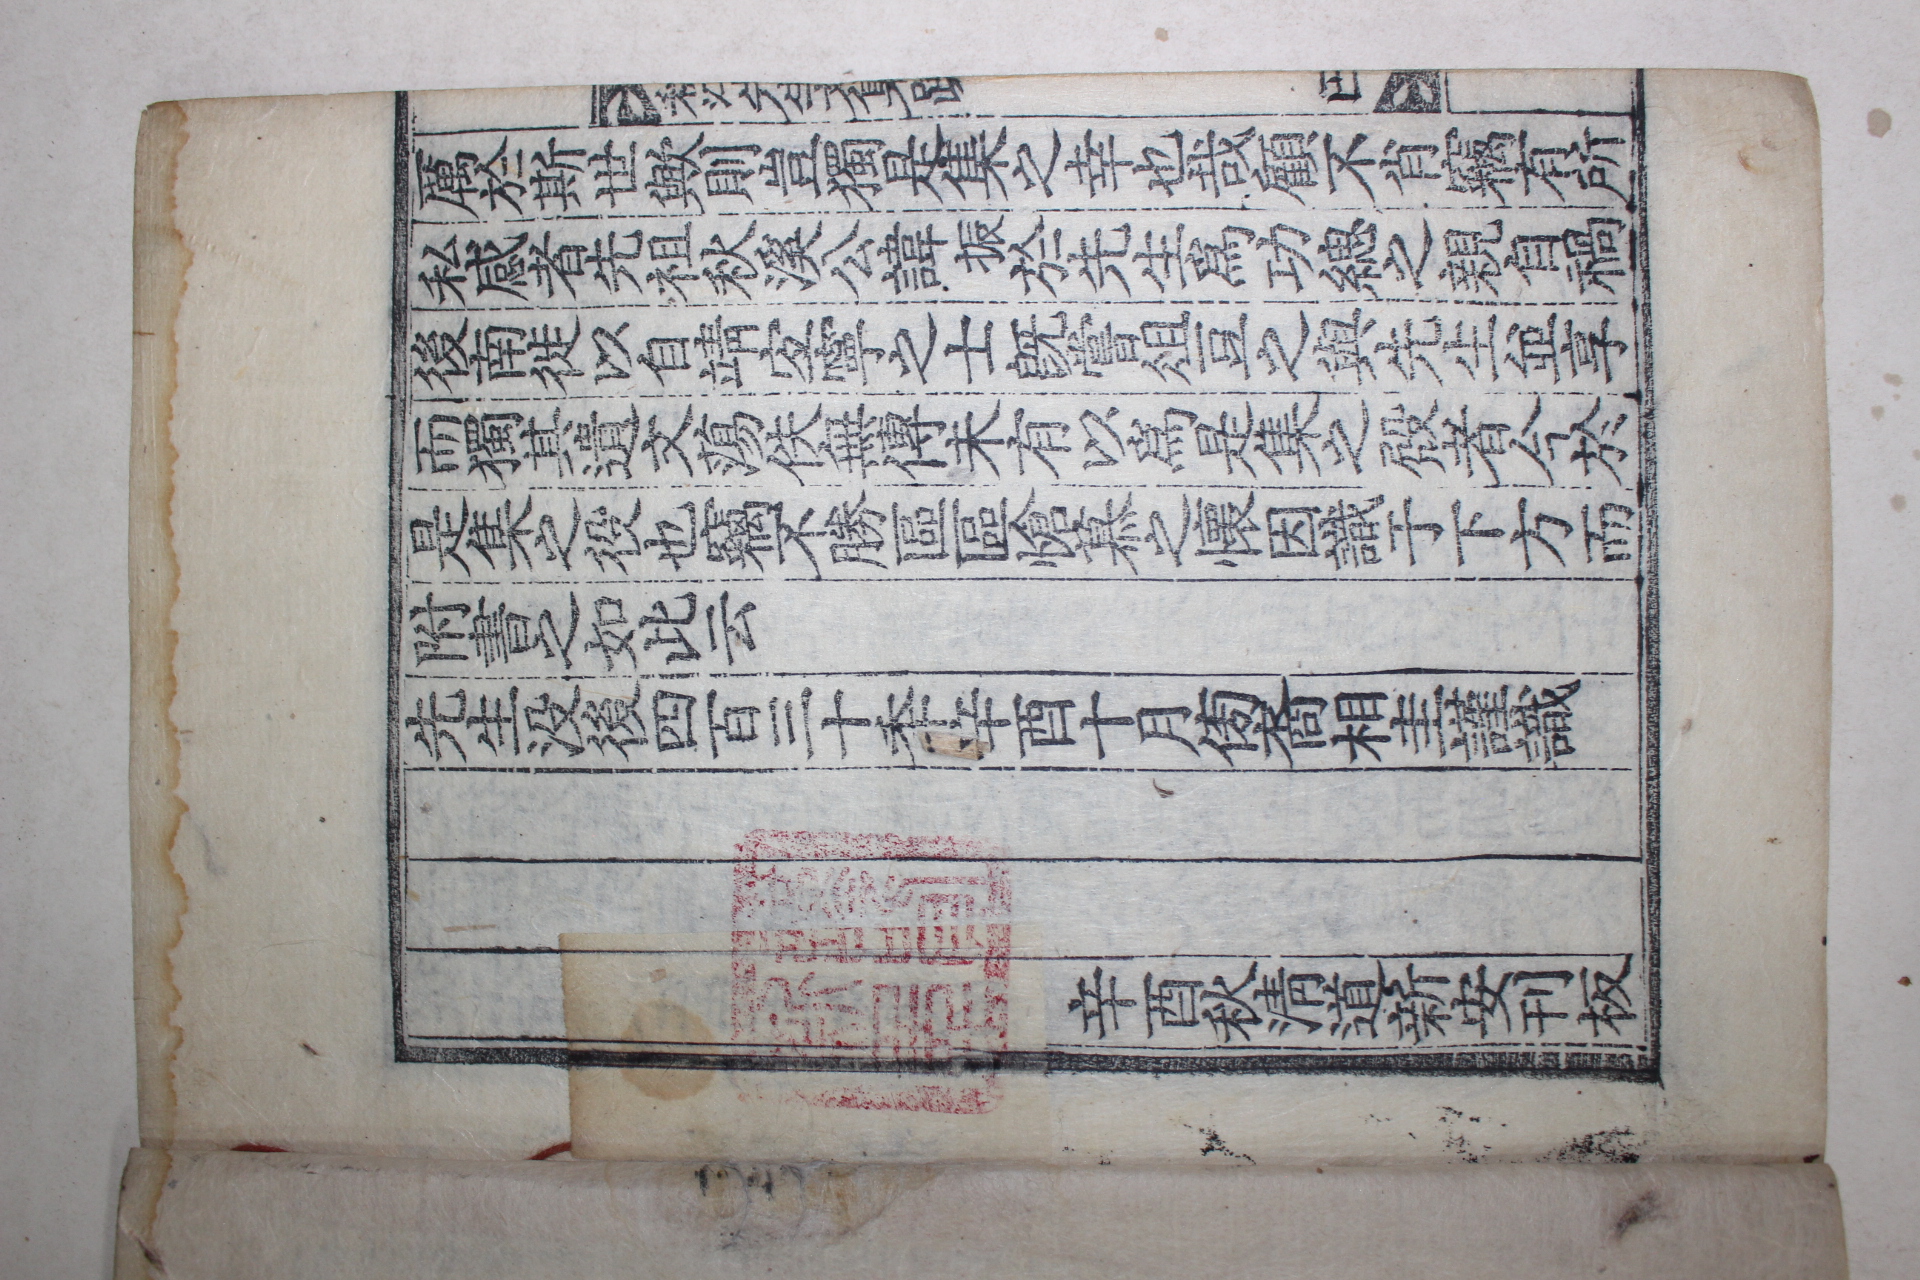 厲於斯世歟則豈獨是集之幸也哉顧不肖竊有所
私感者先祖秋溪公諱振於先生爲功緦之親自禍
後南徙以自靖安寧之士旣嘗俎豆之與先生並享
而獨其遺文蕩佚無傳未有以爲是集之殿者今於
是集之役也竊不勝區區愴慕之懷因識于下方而
附書之如此云
先生沒後四百三十秊辛酉十月傍裔相圭謹識
辛酉秋淸道新安刊板